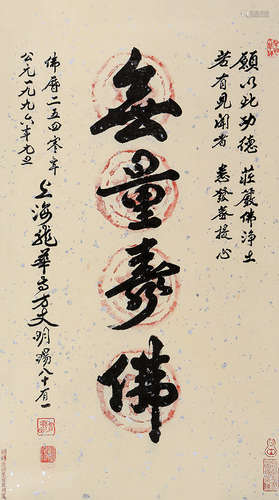 願以此功德 莊嚴佛淨土
若有見聞者 悉發菩提心
無量壽佛
佛曆二五四零年
公元一九九六年元旦
上海龍華古方丈明暘八十有一